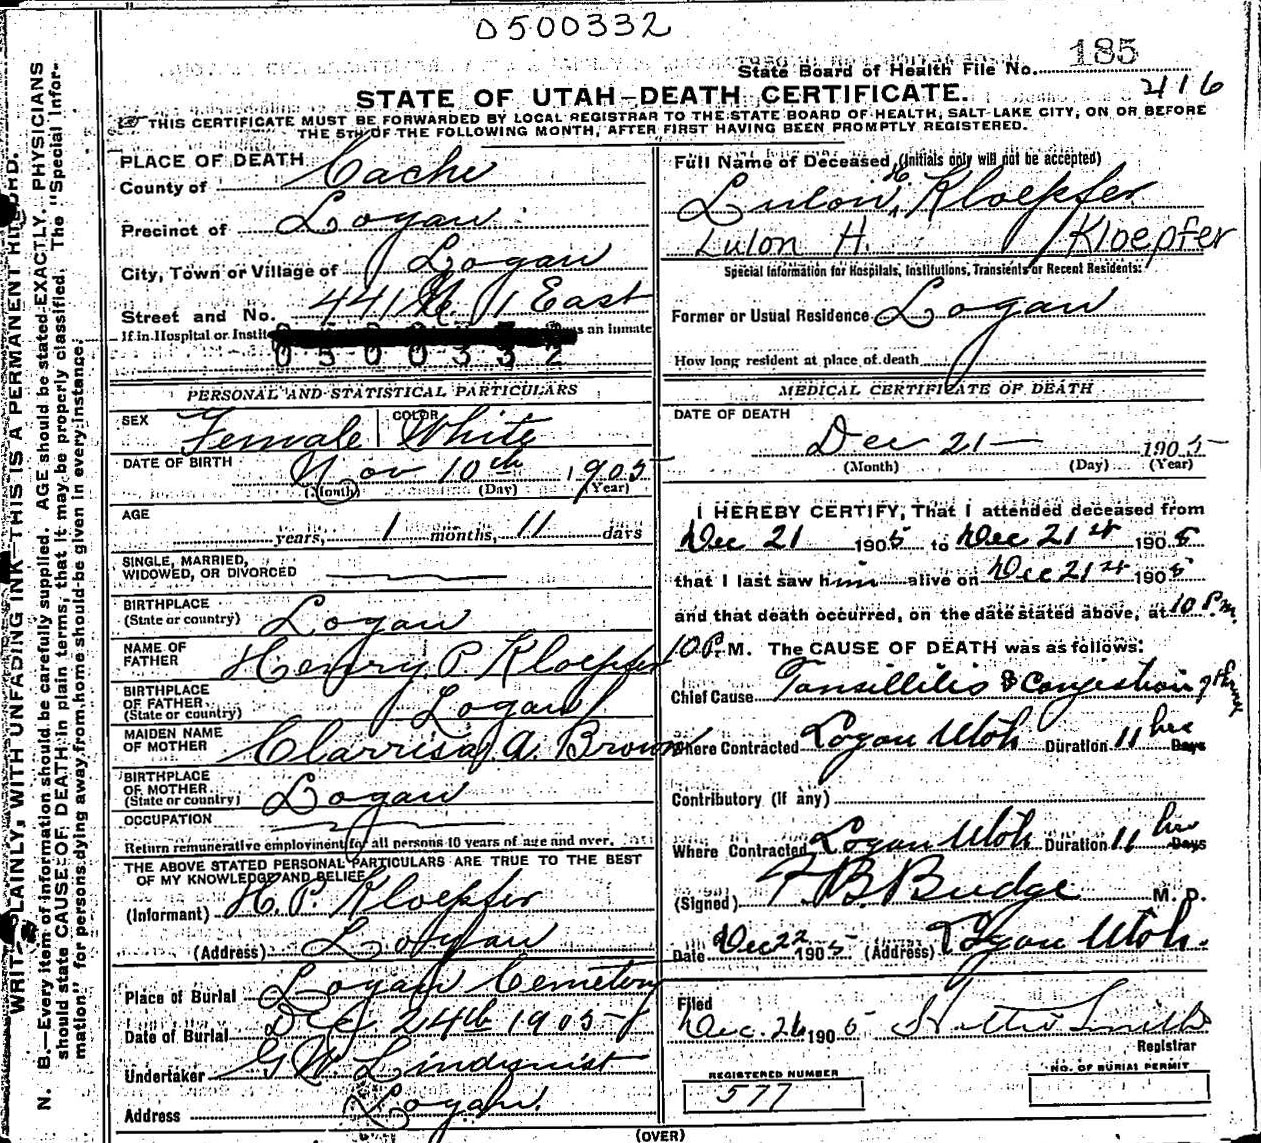 0500332
185
State Board of Health File No.
416
STATE OF UTAH-DEATH CERTIFICATE.
THIS CERTIFICATE MUST BE FORWARDED BY LOCAL REGISTRAR TO THE STATE BOARD OF HEALTH, SALT LAKE CITY, ON OR BEFORE
THE 5TH OF THE FOLLOWING MONTH, AFTER FIRST HAVING BEEN PROMPTLY REGISTERED.
PLACE OF DEATH
County of Cache
Precinct of Logan
City, Town or Village of Logan
Street and No. 441 N. 1 East
If in Hospital or as an inmate
0500332
PERSONAL AND STATISTICAL PARTICULARS
SEX Female COLOR White
DATE OF BIRTH Nov 10th 1905
(Month) (Day) (Year)
AGE
years, 1 months, 11 days
SINGLE, MARRIED,
WIDOWED, OR DIVORCED
BIRTHPLACE
(State or country) Logan
NAME OF
FATHER Henry P. Kloepfer
BIRTHPLACE
OF FATHER
(State or country) Logan
MAIDEN NAME
OF MOTHER Clarrisa A. Brown
BIRTHPLACE
OF MOTHER
(State or country) Logan
OCCUPATION
Return remunerative employment for all persons 10 years of age and over.
THE ABOVE STATED PERSONAL PARTICULARS ARE TRUE TO THE BEST
OF MY KNOWLEDGE AND BELIEF
(Informant) H. P. Kloepfer
(Address) Logan
Place of Burial Logan Cemetery
Date of Burial Dec 24th 1905
Undertaker G W Lindquist
Address Logan.
Full Name of Deceased (Initials only will not be accepted)
Lulon H. Kloepfer
Lulon H. Kloepfer
Special Information for Hospitals, Institutions, Transients or Recent Residents:
Former or Usual Residence Logan
How long resident at place of death
MEDICAL CERTIFICATE OF DEATH
DATE OF DEATH
Dec 21 1905
(Month) (Day) (Year)
I HEREBY CERTIFY, That I attended deceased from
Dec 21 1905 to Dec 21st 1905
that I last saw him alive on Dec 21st 1905
and that death occurred, on the date stated above, at 10 P.m.
10 P. M. The CAUSE OF DEATH was as follows:
Chief Cause Tonsillitis & Congestion of
Where Contracted Logan Utah Duration 11 hrs Days
Contributory (if any)
Where Contracted Logan Utah Duration 11 hrs Days
(Signed) B. Budge M. D.
Date Dec 22 1905 (Address) Logan Utah.
Filed
Dec. 26 1905 Smith
Registrar
REGISTERED NUMBER
577
NO. OF BURIAL PERMIT
(OVER)
THIS IS A PERMANENT
N. B.—Every item of information should be carefully supplied. AGE should be stated EXACTLY. PHYSICIANS
should state CAUSE OF DEATH in plain terms, that it may be properly classified. The "Special Infor-
mation" for persons dying away from home should be given in every instance.